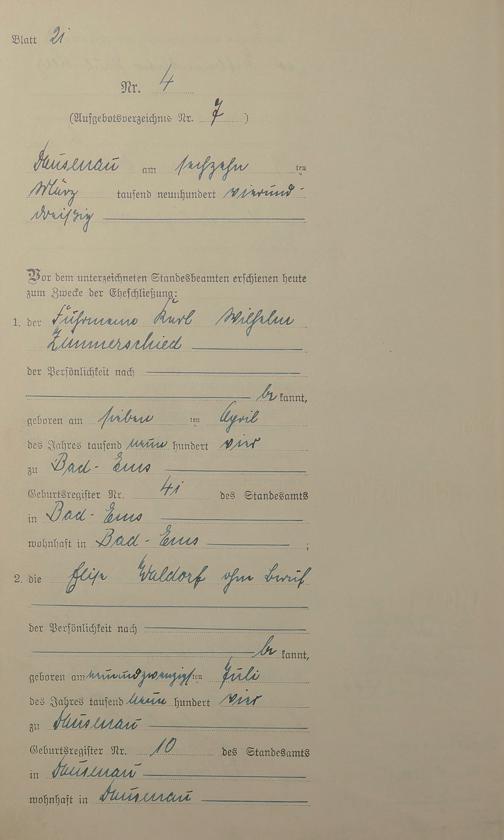 Blatt 21
Nr. 4
(Aufgebotsverzeichnis Nr. 7)
Dausenau am sechzehn ten
März tausend neunhundert vierund-
dreißig
Vor dem unterzeichneten Standesbeamten erschienen heute
zum Zwecke der Eheschließung:
1. der Fuhrmann Karl Wilhelm
Zimmerschied
der Persönlichkeit nach
be kannt,
geboren am sieben ten April
des Jahres tausend neun hundert vier
zu Bad-Ems
Geburtsregister Nr. 41 des Standesamts
in Bad-Ems
wohnhaft in Bad-Ems ;
2. die Elise Waldorf ohne Beruf
der Persönlichkeit nach
be kannt,
geboren am neunundzwanzigsten Juli
des Jahres tausend neun hundert vier
zu Dausenau
Geburtsregister Nr. 10 des Standesamts
in Dausenau
wohnhaft in Dausenau